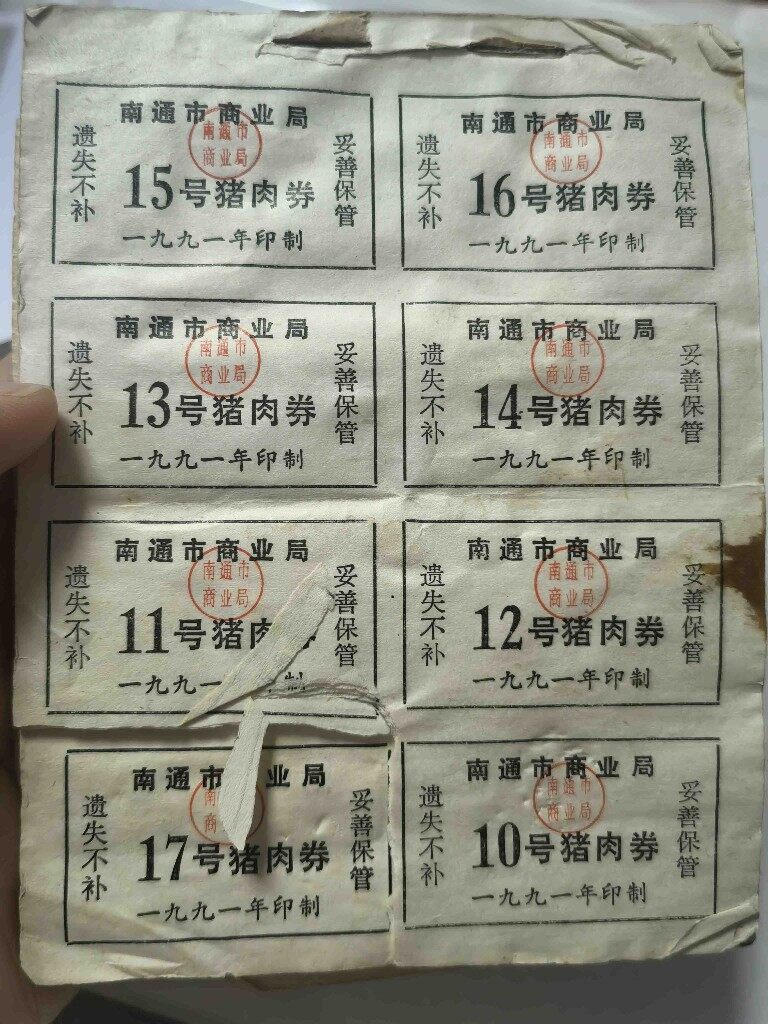 南通市商业局
南通市
商业局
遗失不补
15号猪肉券
妥善保管
一九九一年印制
南通市商业局
南通市
商业局
遗失不补
16号猪肉券
妥善保管
一九九一年印制
南通市商业局
南通市
商业局
遗失不补
13号猪肉券
妥善保管
一九九一年印制
南通市商业局
南通市
商业局
遗失不补
14号猪肉券
妥善保管
一九九一年印制
南通市商业局
南通市
商业局
遗失不补
11号猪肉
妥善保管
一九九一 制
南通市商业局
南通市
商业局
遗失不补
12号猪肉券
妥善保管
一九九一年印制
南通市 业局
南
商
遗失不补
17号猪肉券
妥善保管
一九九一年印制
南通市商业局
南通市
商业局
遗失不补
10号猪肉券
妥善保管
一九九一年印制